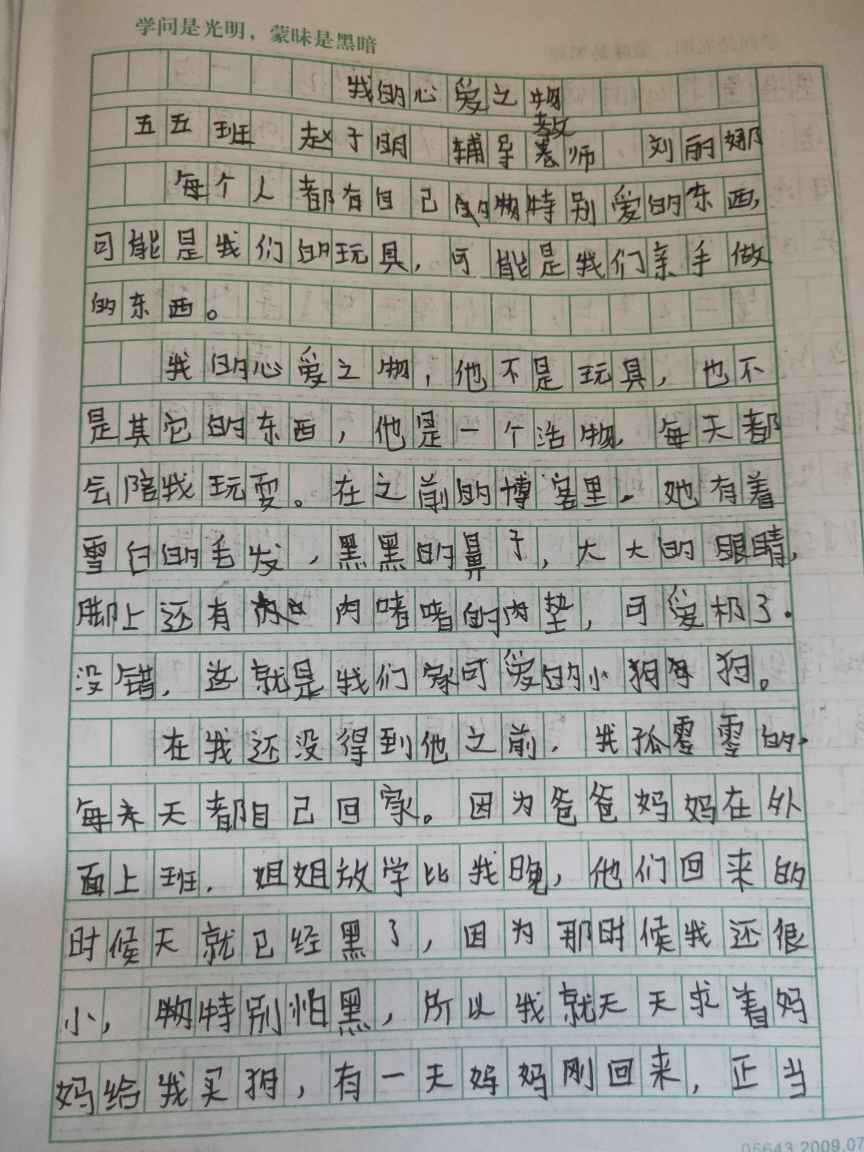 学问是光明，蒙昧是黑暗
我的心爱之物
五五班 赵于明 辅导教师 刘丽娜
每个人都有自己的物特别爱的东西，
可能是我们的玩具，可能是我们亲手做
的东西。
我的心爱之物，他不是玩具，也不
是其它的东西，他是一个活物，每天都
会陪我玩耍。在之前的博客里。她有着
雪白的毛发，黑黑的鼻子，大大的眼睛，
脚上还有肉嘟嘟的肉垫，可爱极了。
没错，这就是我们家可爱的小狗狗。
在我还没得到他之前，我孤零零的，
每天都自己回家。因为爸爸妈妈在外
面上班，姐姐放学比我晚，他们回来的
时候天就已经黑了，因为那时候我还很
小，物特别怕黑，所以我就天天求着妈
妈给我买狗，有一天妈妈刚回来，正当
05643.2009.07